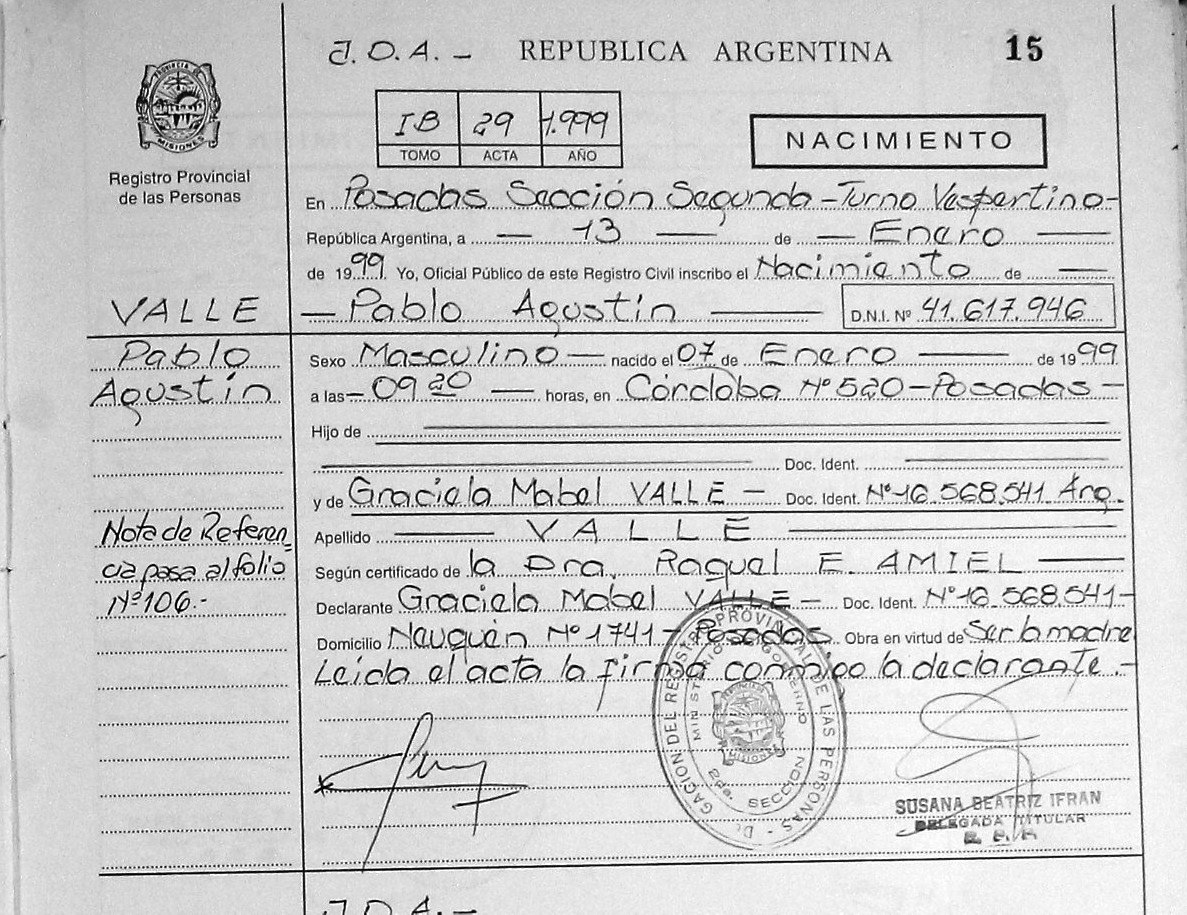 J.D.A.- REPUBLICA ARGENTINA 15
PROVINCIA DE
MISIONES
Registro Provincial
de las Personas
IB 29 1.999
TOMO ACTA AÑO
NACIMIENTO
En Posadas Sección Segunda - Turno Vespertino -
República Argentina, a — 13 — de — Enero —
de 1999 Yo, Oficial Público de este Registro Civil inscribo el Nacimiento de —
VALLE — Pablo Agustín — D.N.I. Nº 41.617.946
Pablo
Agustín
Sexo Masculino — nacido el 07 de Enero — de 1999
a las — 09 20 — horas, en Córdoba Nº 520 - Posadas -
Hijo de —
— Doc. Ident. —
y de Graciela Mabel VALLE — Doc. Ident. Nº 16.568.541 Arg.
Nota de Referen
cia pasa al folio
Nº 106.-
Apellido — VALLE —
Según certificado de la Dra. Raquel E. AMIEL —
Declarante Graciela Mabel VALLE — Doc. Ident. Nº 16.568.541 -
Domicilio Neuquén Nº 1741 - Posadas. Obra en virtud de Ser la madre
Leída el acta la firma conmigo la declarante.-
GACION DEL REGISTRO PROVINCIAL DE LAS PERSONAS
MINISTERIO DE GOBIERNO
MISIONES
2da. SECCION
SUSANA BEATRIZ IFRAN
DELEGADA TITULAR
J.D.A.-